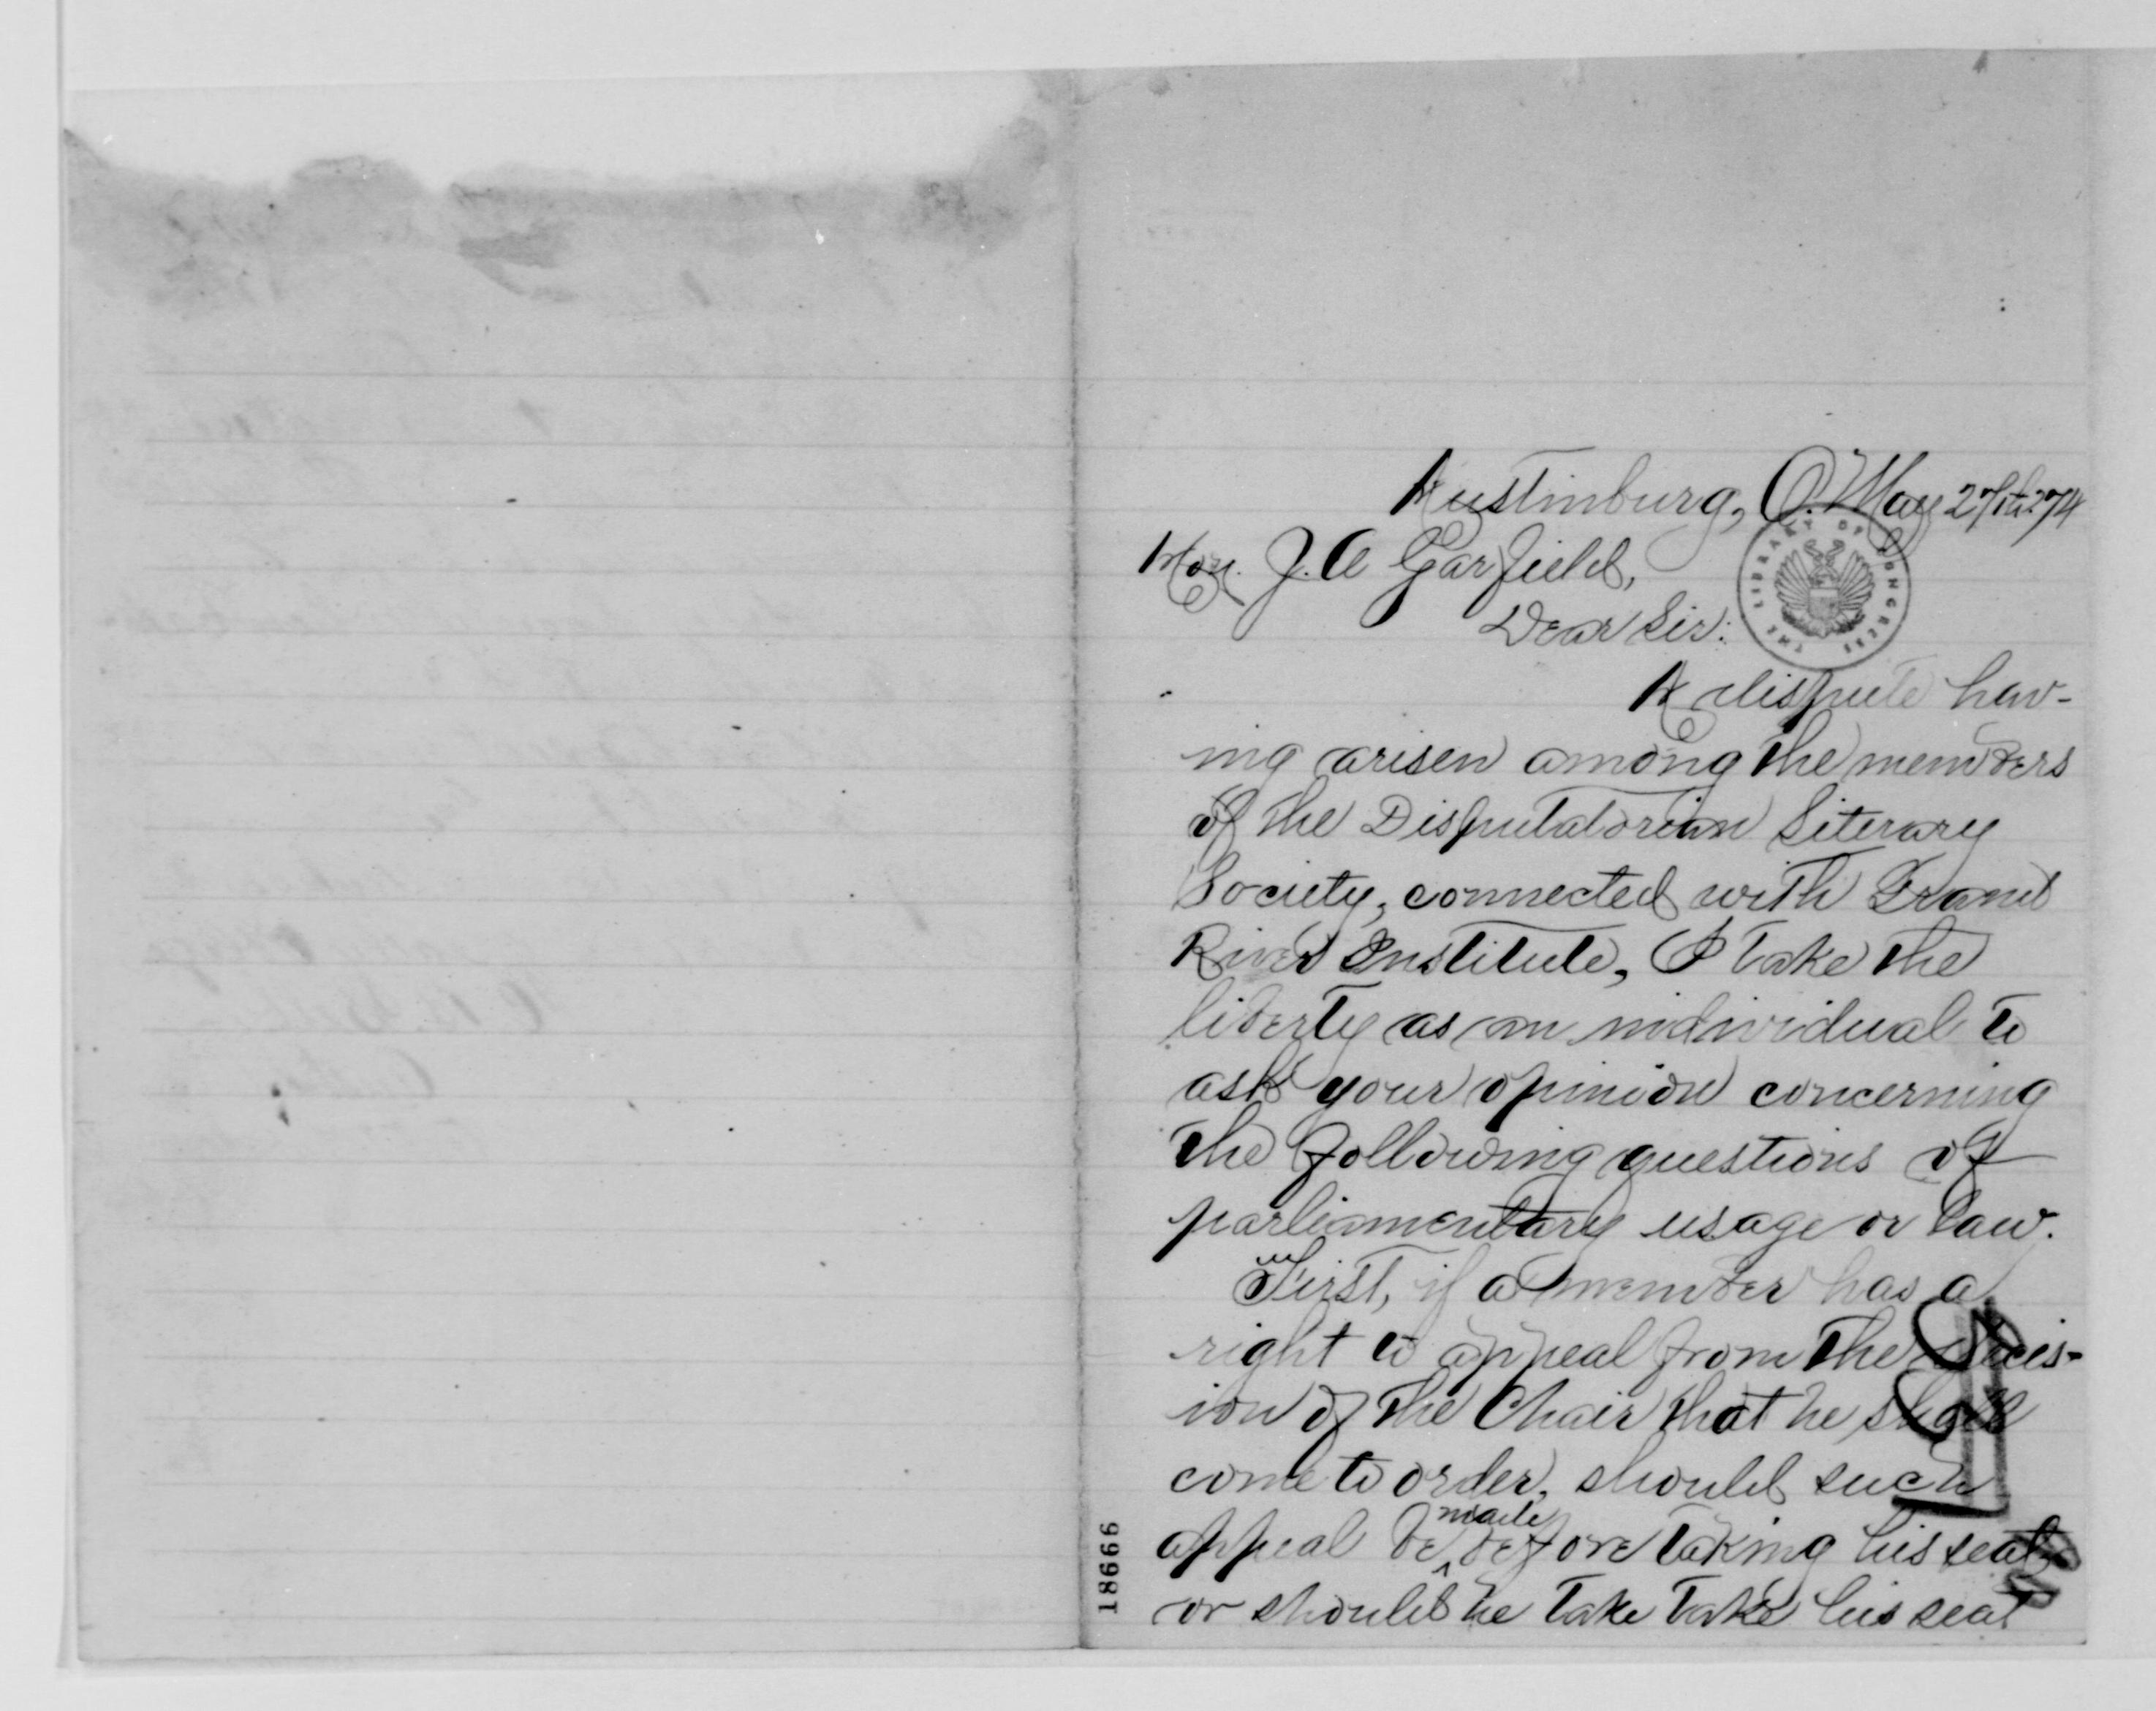 Austinburg, O. May 27th. 74
Hon. J. A Garfield,
Dear Sir:
THE LIBRARY OF CONGRESS
A dispute hav-
ing arisen among the members
of the Disputatorian Literary
Society, connected with Grand
River Institute, I take the
liberty as an individual to
ask your opinion concerning
the following questions of
parliamentary usage or law.
First, if a member has a
right to appeal from the decis-
ion of the Chair that he shall
come to order, should such
appeal be made before taking his seat
or should he take take his seat
18666